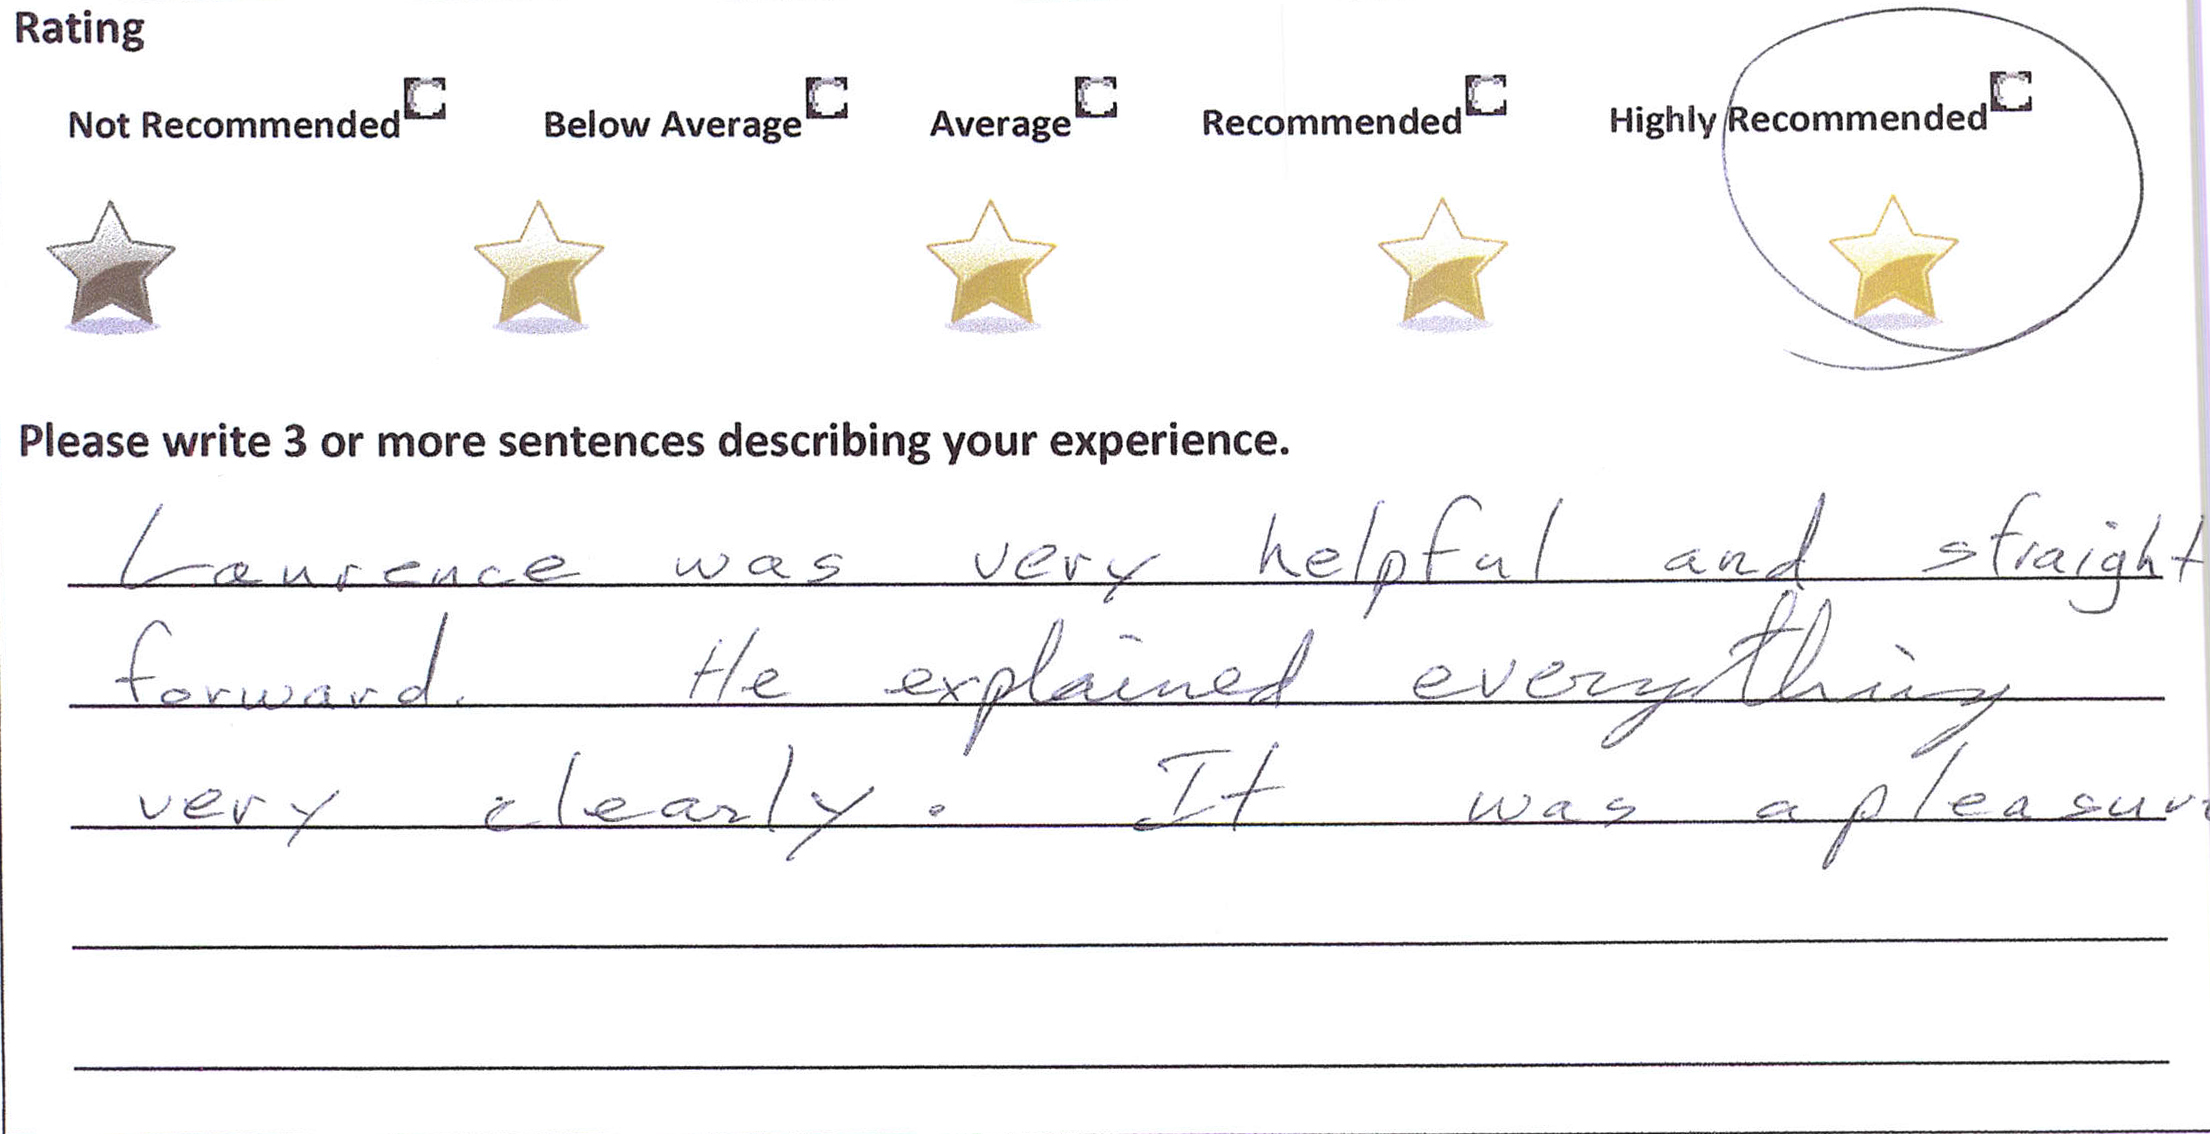 Rating
Not Recommended Below Average Average Recommended Highly Recommended
Please write 3 or more sentences describing your experience.
Laurence was very helpful and straight
forward. He explained everything
very clearly. It was a pleasure